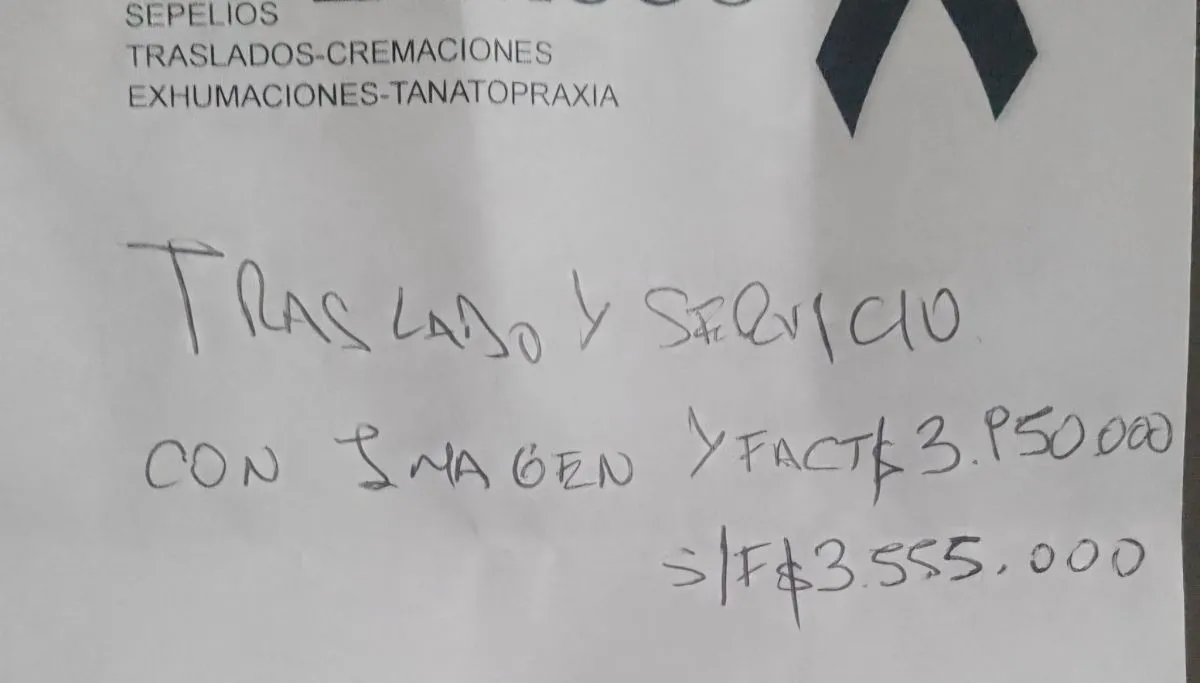 SEPELIOS
TRASLADOS-CREMACIONES
EXHUMACIONES-TANATOPRAXIA
TRASLADO Y SERVICIO
CON IMAGEN Y FACT $ 3.950.000
S/F $ 3.555.000